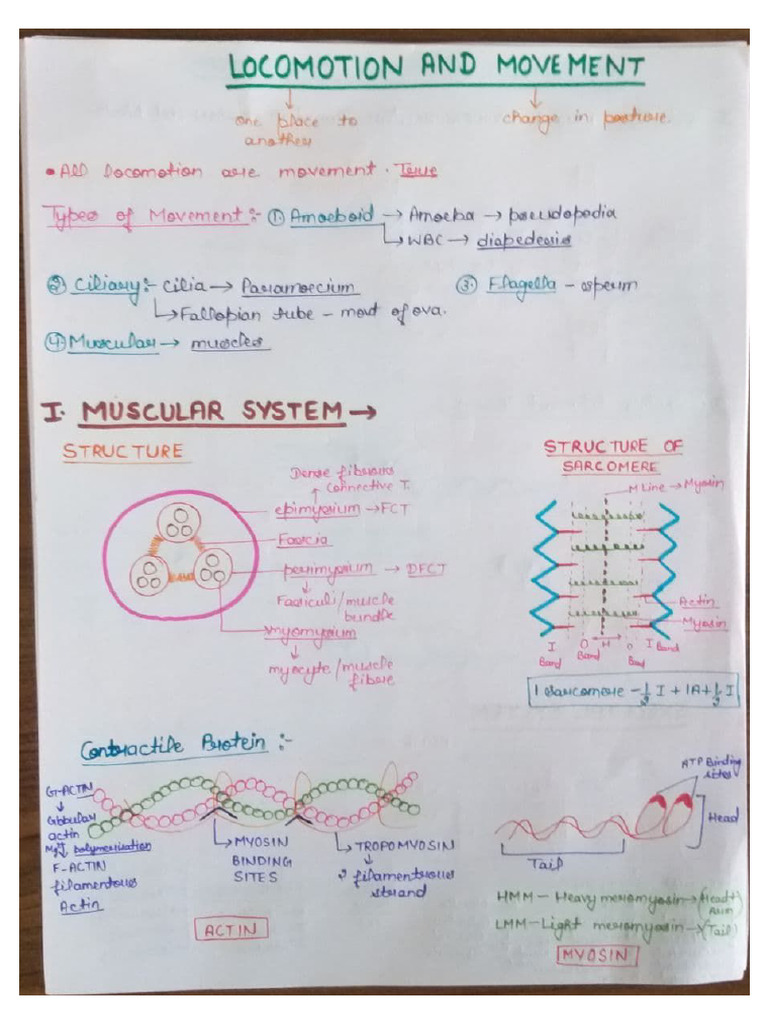 LOCOMOTION AND MOVEMENT
one place to
another
change in posture.
• All locomotion are movement. True
Types of Movement :- ① Amoeboid → Amoeba → pseudopodia
→ WBC → diapedesis
② Ciliary :- cilia → Paramoecium
③ Flagella - sperm
→ Fallopian tube - movt of ova.
④ Muscular → muscles
I. MUSCULAR SYSTEM →
STRUCTURE
Dense fibrous
connective T.
epimysium → FCT
Fascia
perimysium → DFCT
Fasiculi/muscle
bundle
myomysium
myocyte/muscle
fibre
STRUCTURE OF
SARCOMERE
M Line → Myosin
Actin
Myosin
I
Band
O
Band
H
O
Band
I
Band
1 sarcomere - 1/2 I + 1A + 1/2 I
Contractile Protein :-
G-ACTIN
Globular
actin
Mg²⁺ polymerisation
F-ACTIN
filamentous
Actin
MYOSIN
BINDING
SITES
TROPOMYOSIN
2 filamentous
strand
ACTIN
ATP Binding
sites
Head
Tail
HMM - Heavy meromyosin → (Head +
Arm)
LMM - Light meromyosin → (Tail)
MYOSIN